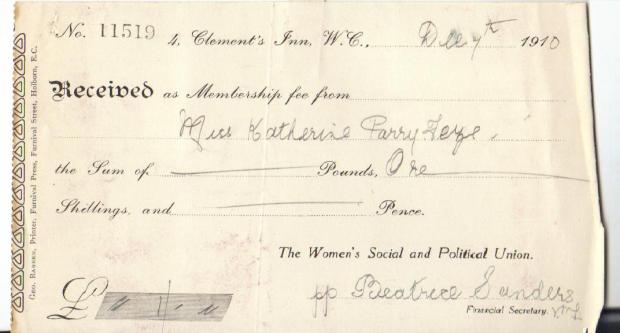 No. 11519 4, Clement's Inn, W.C., Dec 7th 1910
Received as Membership fee from
Miss Katherine Parry
the Sum of Pounds, One
Shillings, and Pence.
The Women's Social and Political Union.
£
pp Beatrice Sanders
Financial Secretary.
Geo. Barber, Printer, Furnival Press, Furnival Street, Holborn, E.C.